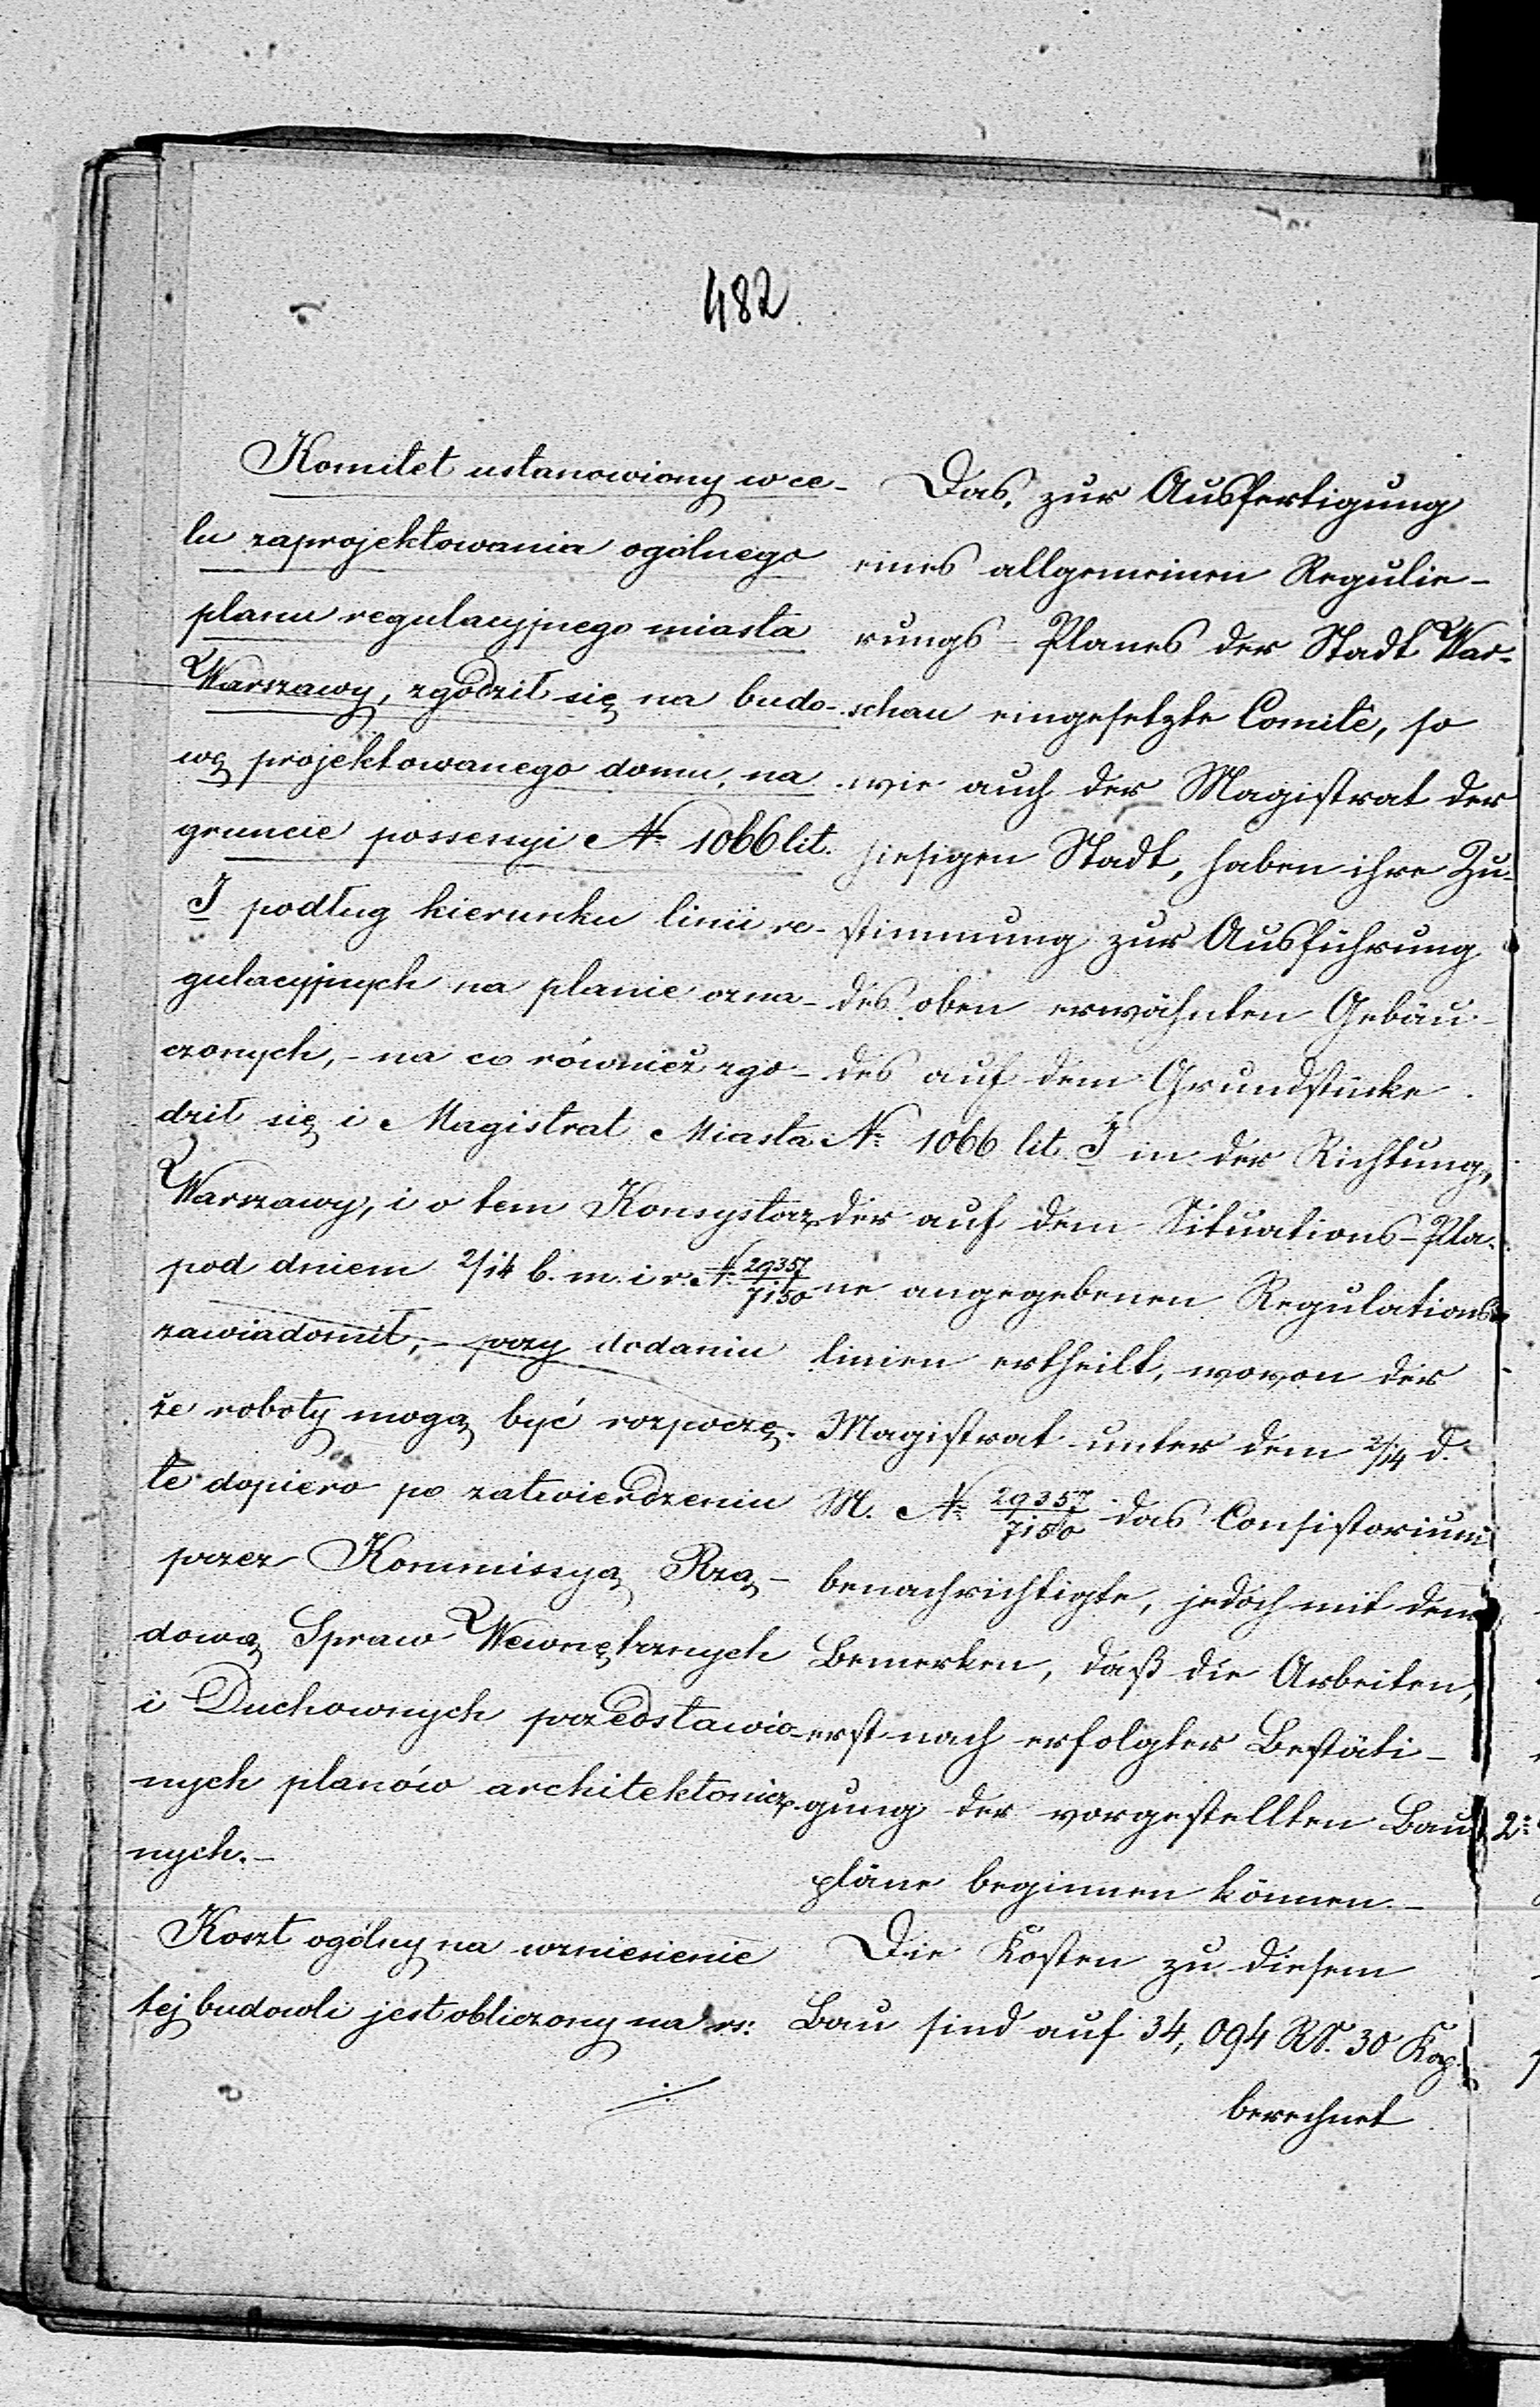 482
Komitet ustanowiony w ce-
lu zaprojektowania ogólnego
planu regulacyjnego miasta
Warszawy, zgodził się na budo-
wę projektowanego domu, na
gruncie possesyi № 1066 lit.
J podług kierunku linii re-
gulacyjnych na planie ozna-
czonych, - na co również zgo-
dził się i Magistrat Miasta
Warszawy, i o tem Konsystorz
pod dniem 2/14 b. m. i r. № 29357/7150
zawiadomił, - przy dodaniu
że roboty mogą być rozpoczę-
te dopiero po zatwierdzeniu
przez Kommissyą Rzą-
dową Spraw Wewnętrznych
i Duchownych przedstawio-
nych planów architektonicz-
nych. -
Koszt ogólny na wzniesienie
tej budowli jest obliczony na rs:
Das, zur Ausfertigung
eines allgemeinen Regulie-
rungs-Planes der Stadt War-
schau eingesetzte Comité, so
wie auch der Magistrat der
hiesigen Stadt, haben ihre Zu-
stimmung zur Ausführung
des oben erwähnten Gebäu-
des auf dem Grundstücke
№ 1066 lit. J in der Richtung,
der auf dem Situations-Pla-
ne angegebenen Regulations-
linien ertheilt, wovon der
Magistrat unter dem 2/14 d.
M. № 29357/7150 das Consistorium
benachrichtigte, jedoch mit dem
Bemerken, daß die Arbeiten,
erst nach erfolgter Bestäti-
gung der vorgestellten Bau
pläne beginnen können. -
Die Kosten zu diesem
Bau sind auf 34,094 RS. 30 Kop.
berechnet
2: